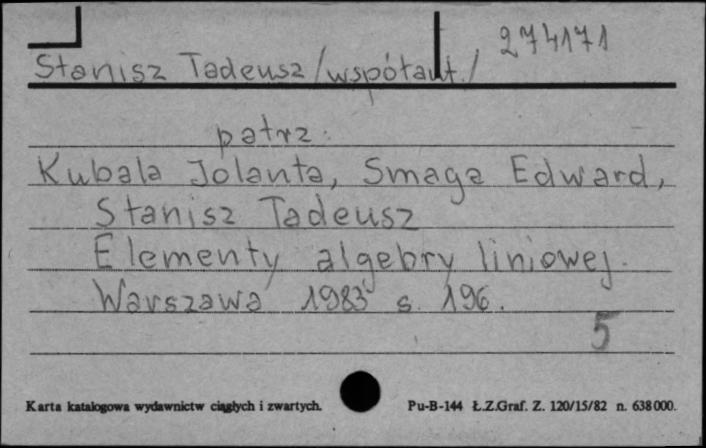 274171
Stanisz Tadeusz /współaut./
patrz:
Kubala Jolanta, Smaga Edward,
Stanisz Tadeusz
Elementy algebry liniowej.
Warszawa 1983 s. 196.
5
Karta katalogowa wydawnictw ciągłych i zwartych. Pu-B-144 Ł.Z.Graf. Z. 120/15/82 n. 638000.